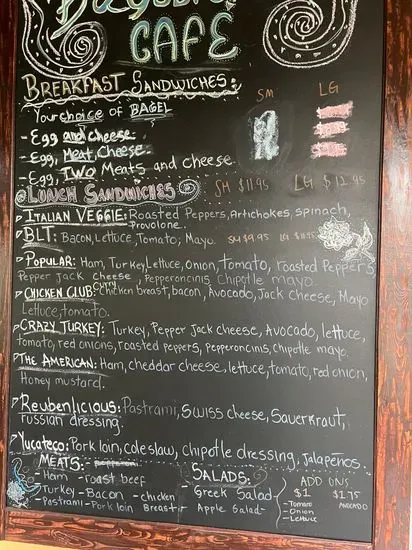 CAFE
BREAKFAST SANDWICHES: SM LG
Your choice of BAGEL
-Egg and cheese
-Egg, Meat, Cheese
-Egg, TWO Meats and cheese
LUNCH SANDWICHES SM $11.95 LG $12.95
ITALIAN VEGGIE: Roasted Peppers, Artichokes, spinach,
Provolone
BLT: Bacon, Lettuce, Tomato, Mayo SM $9.95 LG
POPULAR: Ham, Turkey, Lettuce, Onion, Tomato, roasted Peppers
Pepper jack cheese, Pepperoncinis, Chipotle mayo.
CHICKEN CLUB: Chicken breast, bacon, Avocado, Jack cheese, Mayo
Lettuce, tomato.
CRAZY TURKEY: Turkey, Pepper Jack cheese, Avocado, lettuce,
tomato, red onions, roasted peppers, Pepperoncinis, chipotle mayo.
THE AMERICAN: Ham, cheddar cheese, lettuce, tomato, red onion,
Honey mustard.
Reubenlicious: Pastrami, Swiss cheese, Sauerkraut,
russian dressing.
Yucateco: Pork loin, coleslaw, chipotle dressing, jalapeños.
MEATS: SALADS: ADD ONS
-Ham -roast beef Greek Salad $1 $1.75
-Turkey -Bacon -chicken Apple Salad -Tomato AVOCADO
-Pastrami -Pork loin Breast -Onion
-Lettuce